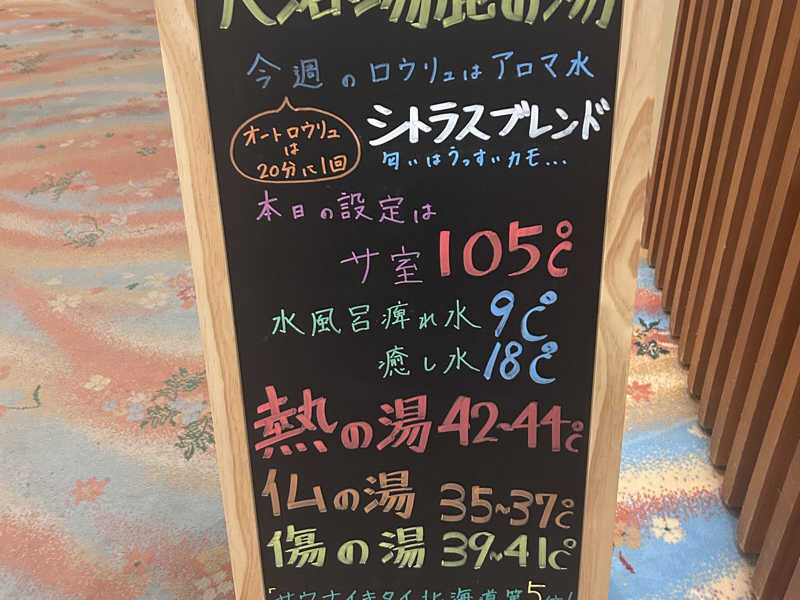 大浴場鹿の湯
今週のロウリュはアロマ水
シトラスブレンド
オートロウリュ
は
20分に1回
匂いはうっすいカモ...
本日の設定は
サ室 105℃
水風呂痺れ水 9℃
癒し水 18℃
熱の湯 42~44℃
仏の湯 35~37℃
傷の湯 39~41℃
「サウナイキタイ北海道第5位!